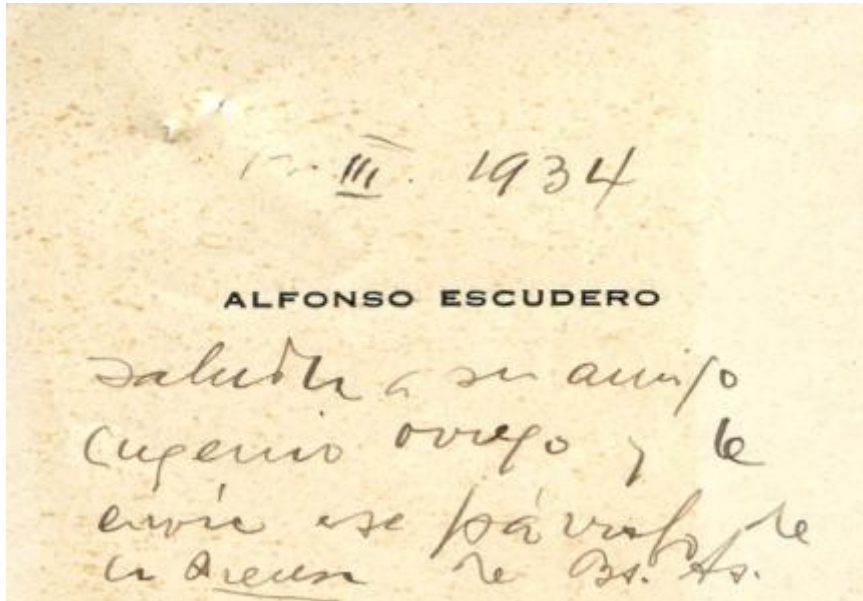 III. 1934
ALFONSO ESCUDERO
saluda a su amigo
Eugenio Orrego y le
envía ese párrafo de
La Prensa de Bs. As.